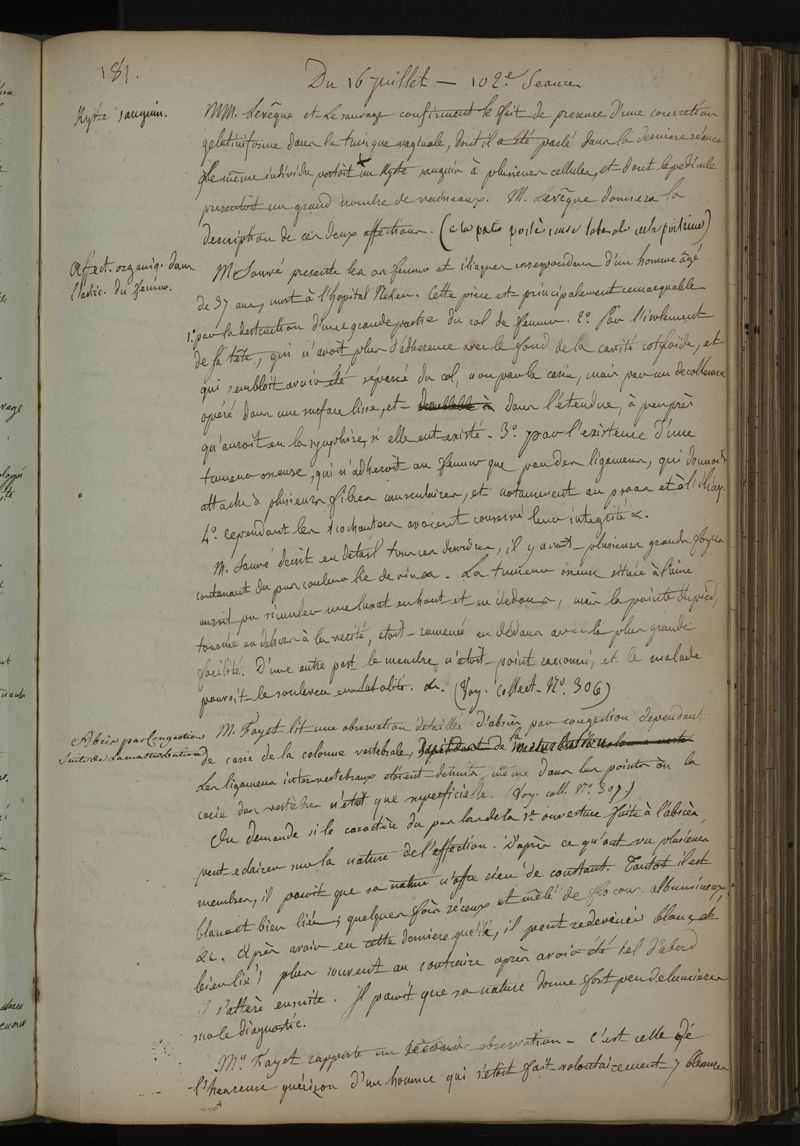 181.
Du 16 juillet — 102.e Seance
Kyste sanguin.
MM. Levêque et Lesauvage confirment le fait de presence d'une concretion
gelatiniforme dans la tunique vaginale, dont il a été parlé dans la derniere séance
Le même individu portoit un Kyste sanguin à plusieurs cellules, et dont le pedicule
presentoit un grand nombre de vaisseaux. M. Levêque donnera la
description de ces deux affections. (a la partie postero laterale de la poitrine)
Afect. organiq. dans
l'artic. du femur.
M. Sauvé presente les os femur et iliaques correspondans d'un homme âgé
de 37 ans, mort à l'hopital Necker. Cette piece est principalement remarquable
1.º par la destruction d'une grande partie du col du femur. 2.º Par l'isolement
de sa tête, qui n'avoit plus d'adherence avec le fond de la cavité cotyloide, et
qui sembloit avoir été séparée du col, non par la carie, mais par un decollement
opéré dans une surface lisse, et dans l'étendue, à peu près
qu'auroit eu la symphise, si elle eut existé. 3.º par l'existence d'une
tumeur osseuse, qui n'adheroit au femur que par des ligamens, qui donnoit
attache à plusieurs fibres musculaires, et notamment au psoas et à l'iliaq.
4.º cependant les trochanters avoient conservé leur integrité &.
M. Sauvé decrit en detail tous ces desordres, il y avoit plusieurs grands foyers
contenant du pus couleur lie de vin &a. La tumeur osseuse située à l'aine
auroit pu simuler une luxat en haut et en dedans, mais la pointe du pied,
tournée en dehors à la verité, etoit ramenée en dedans avec la plus grande
facilité. D'une autre part le membre n'etoit point raccourci, et le malade
pouvoit le soulever en totalité. &. (Voy. Collect. N.º 306)
Abcès par Congestion
Suite de la masturbation
M. Fayet lit une observation detaillée d'abcès par congestion dependant
de carie de la colonne vertebrale, dependant de la masturbation
Les ligamens intervertebraux etoient detruits, même dans les points où la
carie des vertèbres n'etoit que superficielle. (Voy. coll. N.º 307)
On demande si le caractère du pus lors de la 1.e ouverture faite à l'abcès,
peut eclairer sur la nature de l'affection. D'après ce qu'ont vu plusieurs
membres, il paroit que sa nature n'a rien de constant. Tantot il est
blanc et bien lié; quelques fois séreux et mêlé de flocons albumineux,
&c. Après avoir eu cette derniere qualité, il peut redevenir blanc et
bien lié; plus souvent au contraire après avoir été tel d'abord
il s'altère ensuite. Il paroit que sa nature donne fort peu de lumieres
sur le diagnostic.
M.r Fayet rapporte une seconde observation - C'est celle de
l'heureuse guérizon d'un homme qui s'etoit fait volontairement 7 blessures